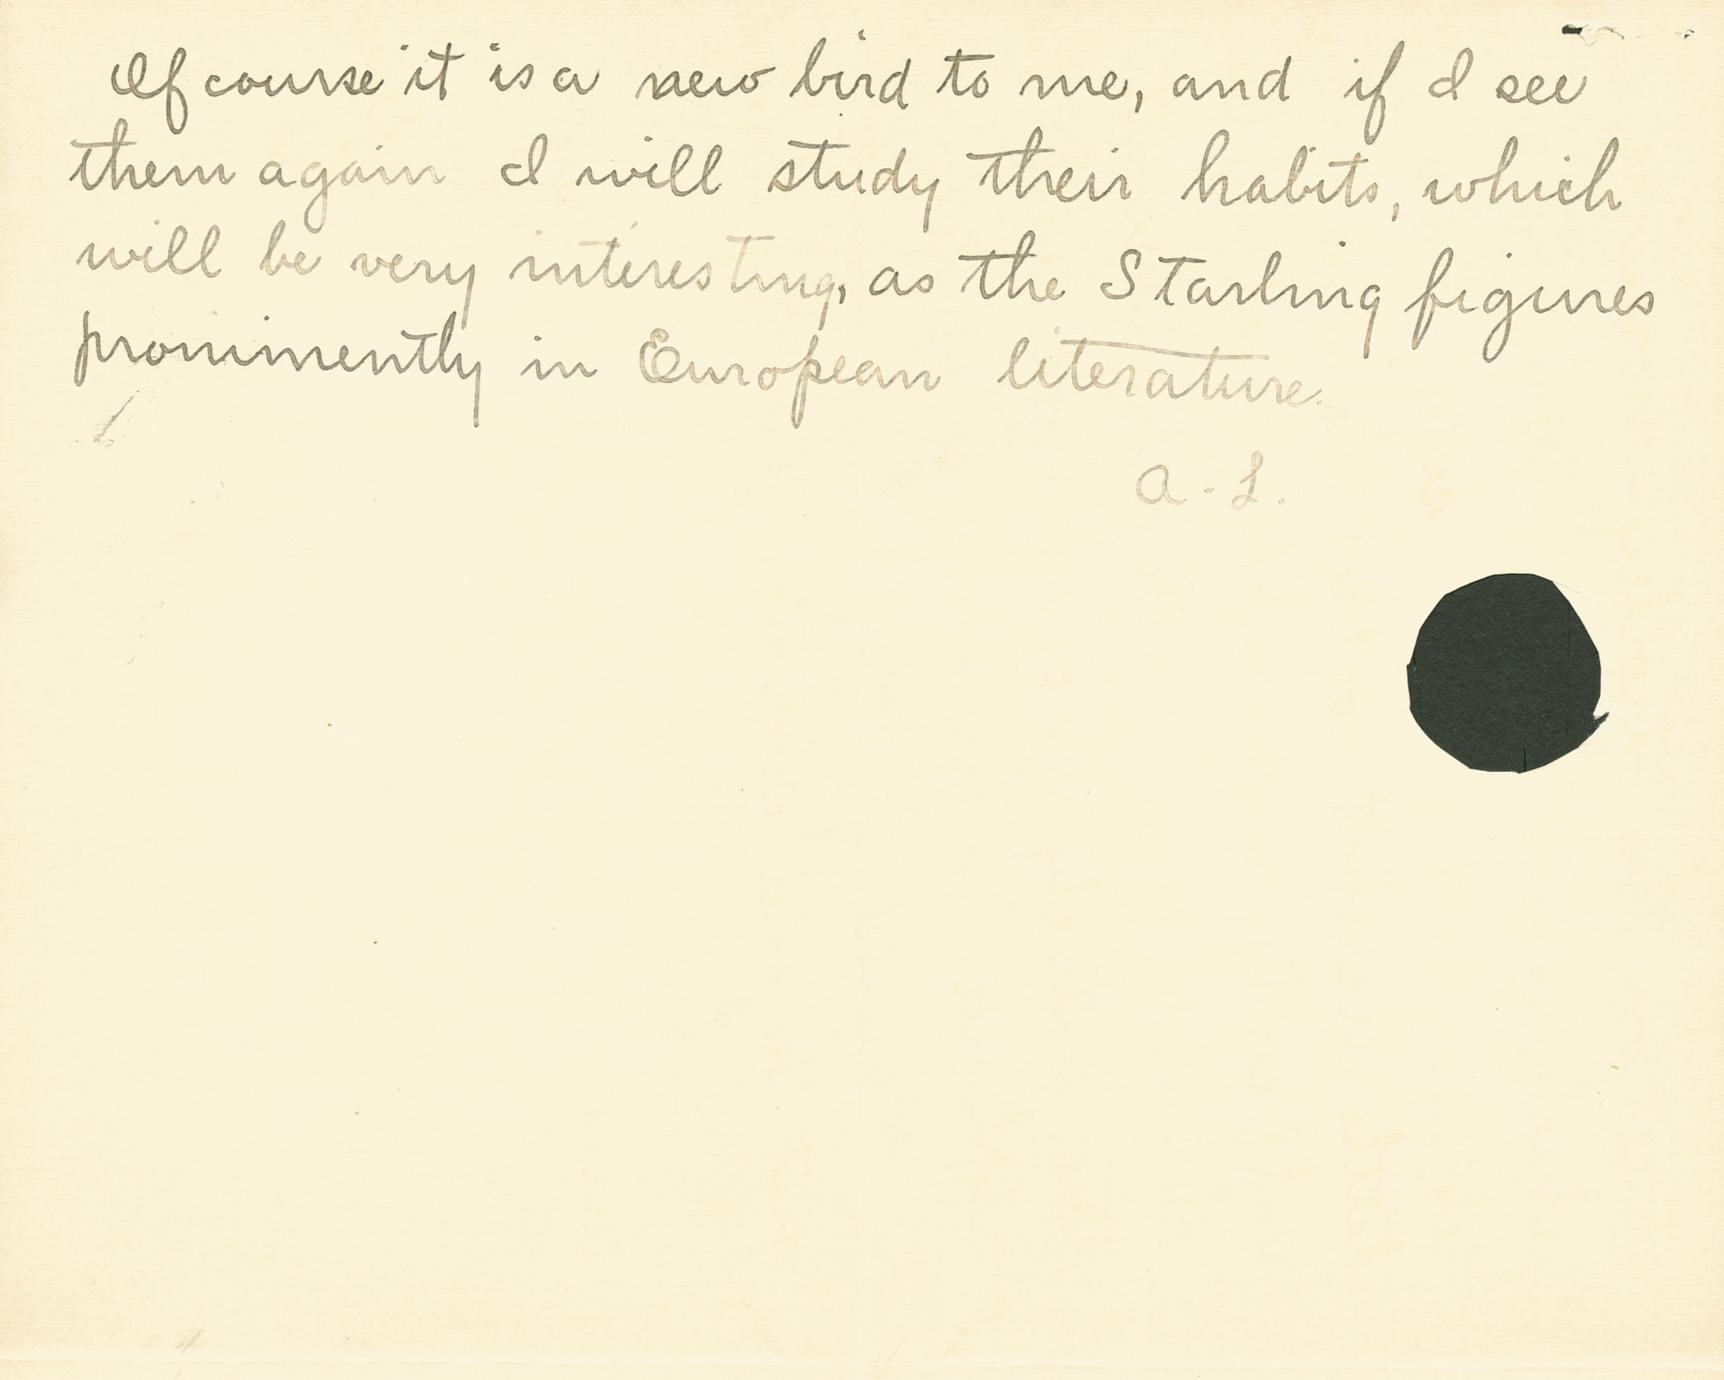 Of course it is a new bird to me, and if I see
them again I will study their habits, which
will be very interesting, as the Starling figures
prominently in European literature.
A. L.